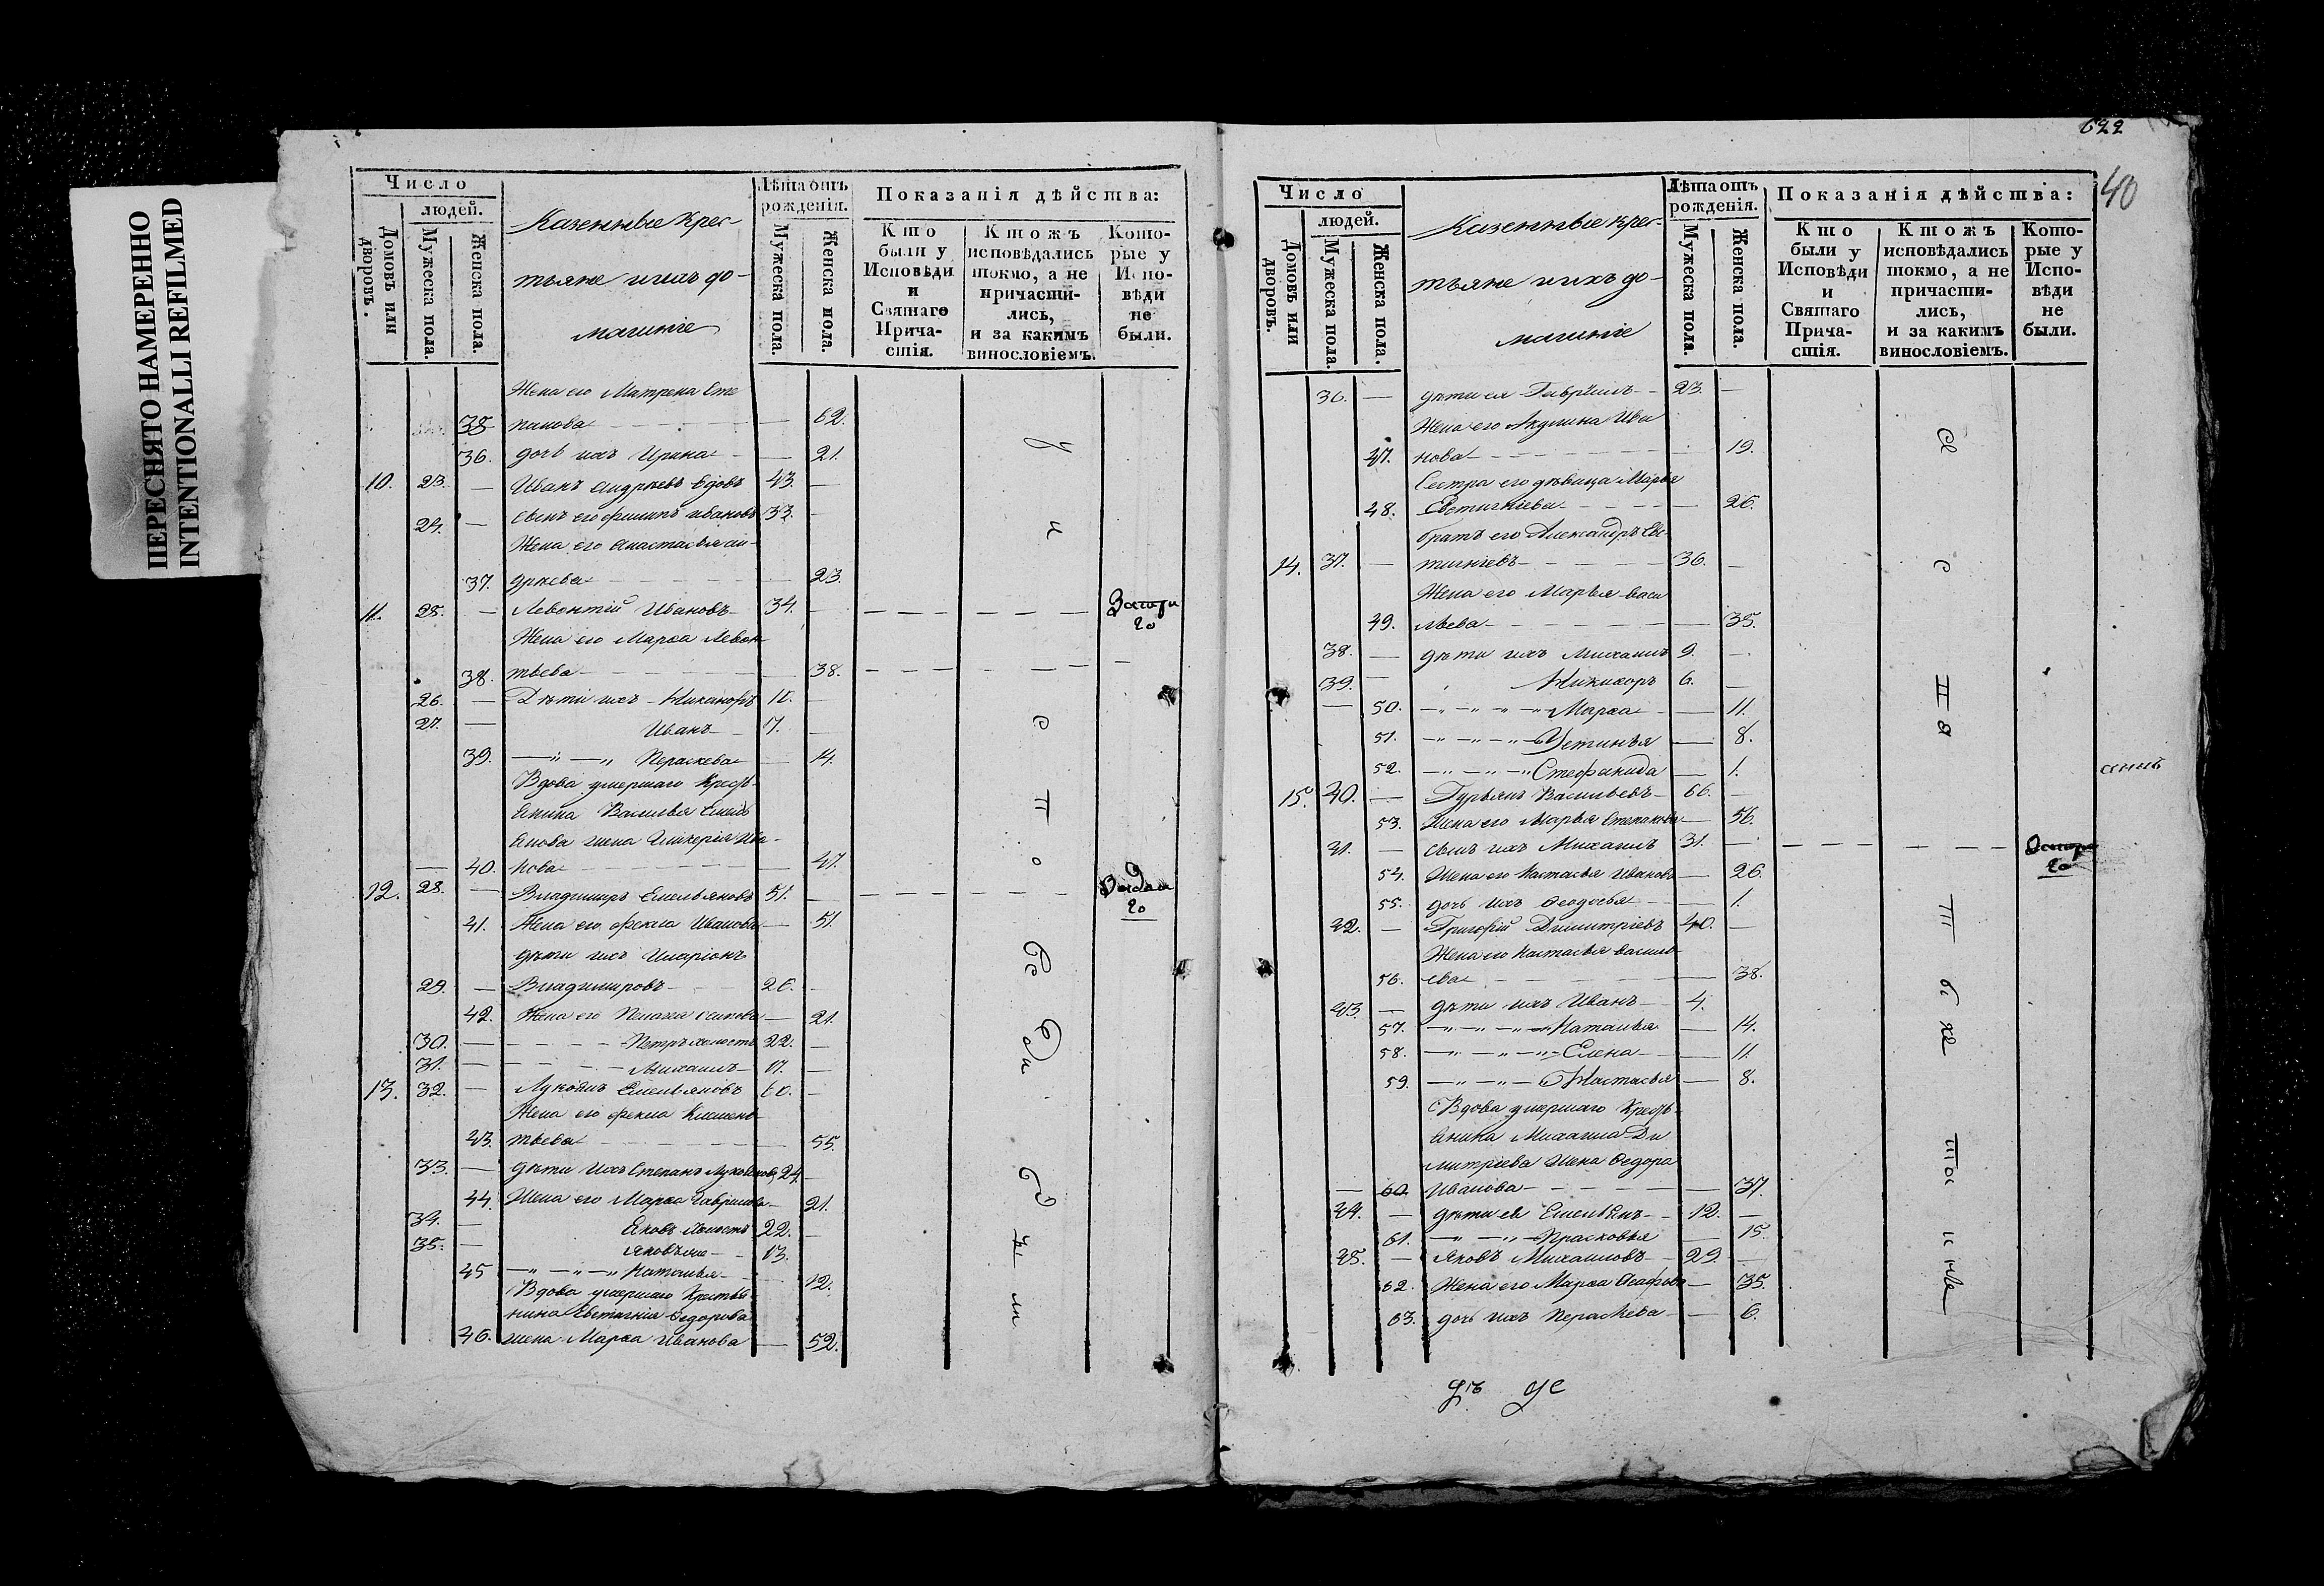 ПЕРЕСНЯТО НАМЕРЕННО
INTENTIONALLI REFILMED
Число
людей.
Домовъ или дворовъ.
Мужеска пола.
Женска пола.
Казенные крес-
тьяне и ихъ до-
машніе
Лѣта отъ рожденія.
Мужеска пола.
Женска пола.
Показанія дѣйства:
Кто были у Исповѣди и Святаго Причастія.
Ктожъ исповѣдались токмо, а не причастились, и за какимъ винословіемъ.
Которые у Исповѣди не были.
Жена его Матрена Сте
38 панова — 62.
36. дочь ихъ Ирина — 21.
10. 23. — Иванъ Андреевъ вдовъ 43. —
24. — сынъ его Филипъ Ивановъ 33. —
Жена его Анастасья Ан-
37. дреева — 23.
11. 25. — Левонтій Ивановъ 34. —
Жена его Марѳа Левон
38. тьева — 38.
26. — Дѣти ихъ Никаноръ —
27. — Иванъ —
39. Пераскева — 14.
Вдова умершаго Крестья-
янина Василья Емель
янова жена Гликерія Ива-
— 40. нова — 47.
12. 28. — Владимиръ Емельяновъ 51. —
41. Жена его Фекла Иванова — 51.
дѣти ихъ Иларіонъ
29. — Владимировъ 26. —
42. Жена его Пелагея Осипова — 21.
30. — Петръ холостъ 22. —
31. — Михаилъ 17. —
13. 32. — Лукоянъ Емельяновъ 60. —
Жена его Фекла Клемен
43. тьева — 55.
33. — дѣти ихъ Степанъ Лукояновъ 24. —
44. Жена его Марѳа Гаврилова — 21.
34. — Яковъ холостъ 22. —
35. — Яковъ же 13.
45 Наталья — 12.
Вдова умершаго Крестья-
нина Евстигнія Ѳедорова
46. жена Марѳа Иванова — 52.
622
40
Число
людей.
Домовъ или дворовъ.
Мужеска пола.
Женска пола.
Казенные крес-
тьяне и ихъ до-
машніе
Лѣта отъ рожденія.
Мужеска пола.
Женска пола.
Показанія дѣйства:
Кто были у Исповѣди и Святаго Причастія.
Ктожъ исповѣдались токмо, а не причастились, и за какимъ винословіемъ.
Которые у Исповѣди не были.
36. — дѣти ея Гавріилъ 23. —
Жена его Акулина Ива
47. нова — 19.
Сестра его дѣвица Марья
48. Евстигніева — 26.
братъ его Александръ Евс-
14. 37. — тигніевъ 36. —
Жена его Марья Васи
49. льева — 35.
38. — дѣти ихъ Михаилъ 9. —
39. — Никифоръ 6. —
— 50. Марѳа — 11.
51. Устинья — 8.
52. Стефанида — 1.
15. 40. — Гурьянъ Васильевъ 66. —
53. Жена его Марья Степанова — 56.
41. — сынъ ихъ Михаилъ 31. —
54. Жена его Настасья Иванова — 26.
55. дочь ихъ Ѳеодосья — 1.
42. — Григорій Димитріевъ 40. —
Жена его Настасья Василь-
56. ева — 38.
43. — дѣти ихъ Иванъ 4.
57. Наталья — 14.
58. Елена — 11.
59. Настасья — 8.
Вдова умершаго Крестья-
янина Михаила Ди
митріева жена Ѳедора
— 60. Иванова — 37.
44. — дѣти ея Емельянъ 12. —
61. Прасковья — 15.
45. — Яковъ Михаиловъ 29. —
62. Жена его Марѳа — 35.
63. дочь ихъ Пераскева — 6.